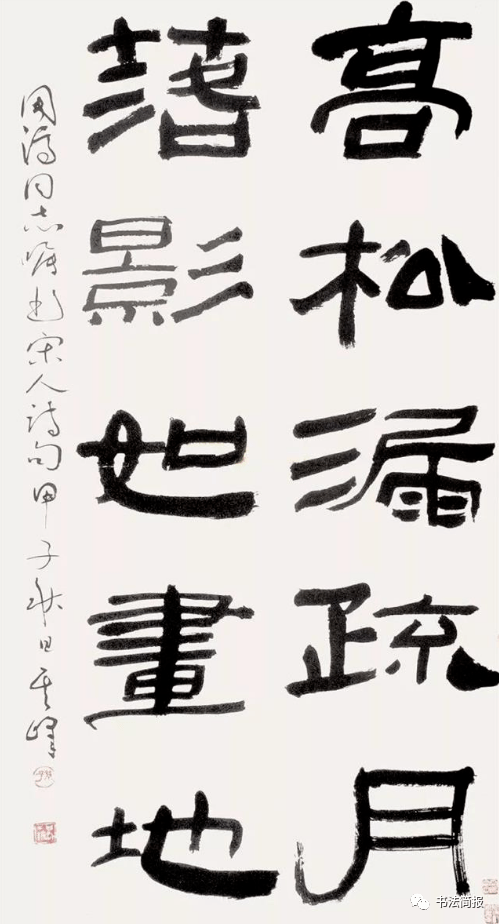 高松漏疏月
落影如畫地
同志嘱书宋人詩句甲子秋日其峰
书法简报